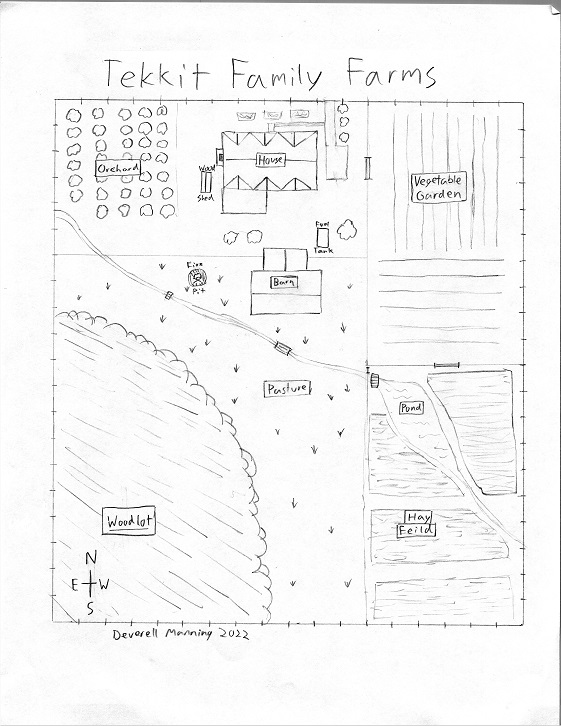 Tekkit Family Farms
Orchard
Wood
Shed
House
Vegetable
Garden
Fuel
Tank
Fire
Pit
Barn
Pasture
Pond
Woodlot
Hay
Feild
N
E W
S
Deverell Manning 2022